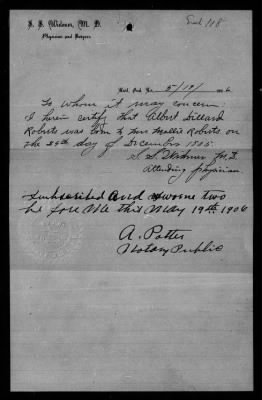 End 118
M. D.
Physician and Surgeon
Ind. Ter. 5/19/ 6
To whom it may concern:
I here certify that Albert Dillard
Roberts was born to Mrs Mollie Roberts on
the 29th day of December 1905.
M.D.
Attending physician.
Subscribed and sworne two
be fore Me this May 19th 1906
A. Potter
Notary Public